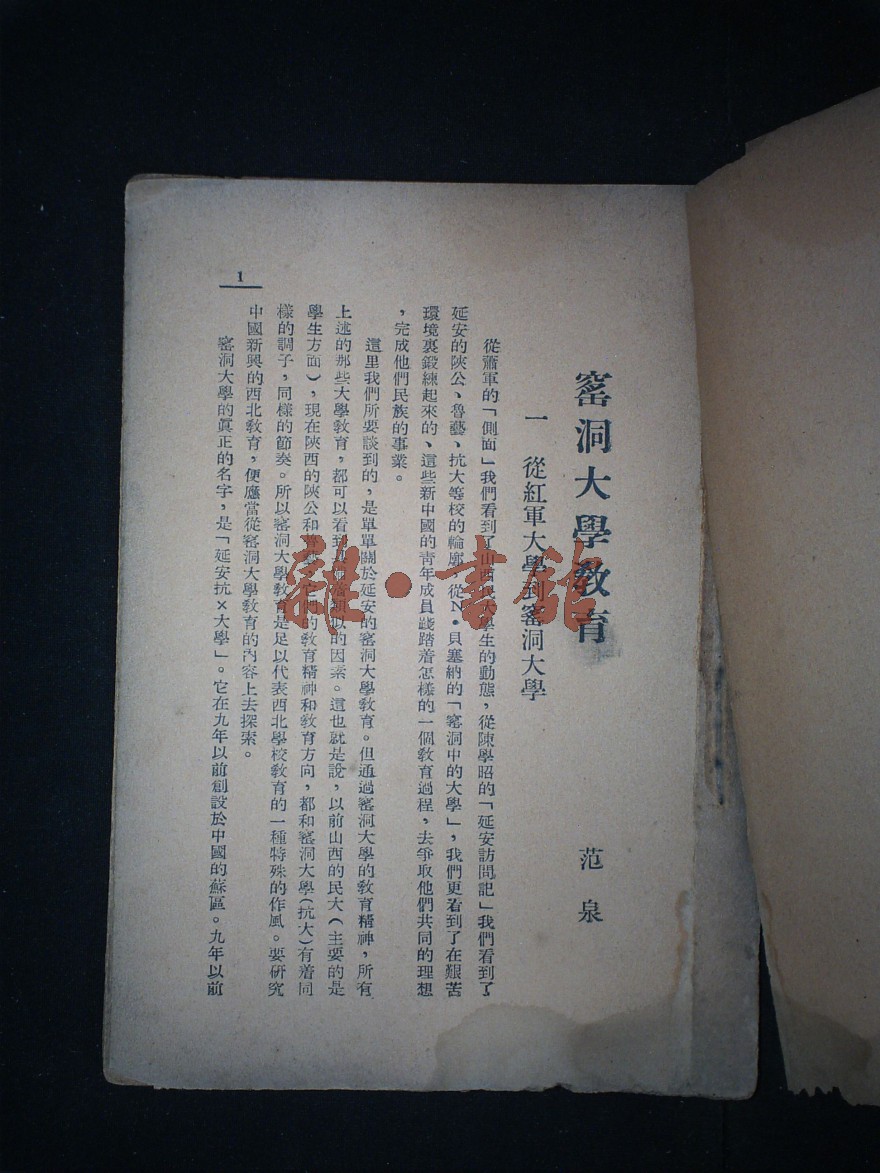 窰洞大學教育
范泉
一 從紅軍大學到窰洞大學
從蕭軍的「側面」我們看到了山西民大學生的動態，從陳學昭的「延安訪問記」我們看到了
延安的陝公、魯藝、抗大等校的輪廓，從N·貝塞納的「窰洞中的大學」，我們更看到了在艱苦
環境裏鍛練起來的、這些新中國的青年成員踐踏着怎樣的一個教育過程，去爭取他們共同的理想
，完成他們民族的事業。
這里我們所要談到的，是單單關於延安的窰洞大學教育。但通過窰洞大學的教育精神，所有
上述的那些大學教育，都可以看到具備着類似的因素。這也就是說，以前山西的民大（主要的是
學生方面），現在陝西的陝公和魯藝，它們的教育精神和教育方向，都和窰洞大學（抗大）有着同
樣的調子，同樣的節奏。所以窰洞大學教育是足以代表西北學校教育的一種特殊的作風。要研究
中國新興的西北教育，便應當從窰洞大學教育的內容上去探索。
窰洞大學的眞正的名字，是「延安抗×大學」。它在九年以前創設於中國的蘇區。九年以前
1
雜·書館